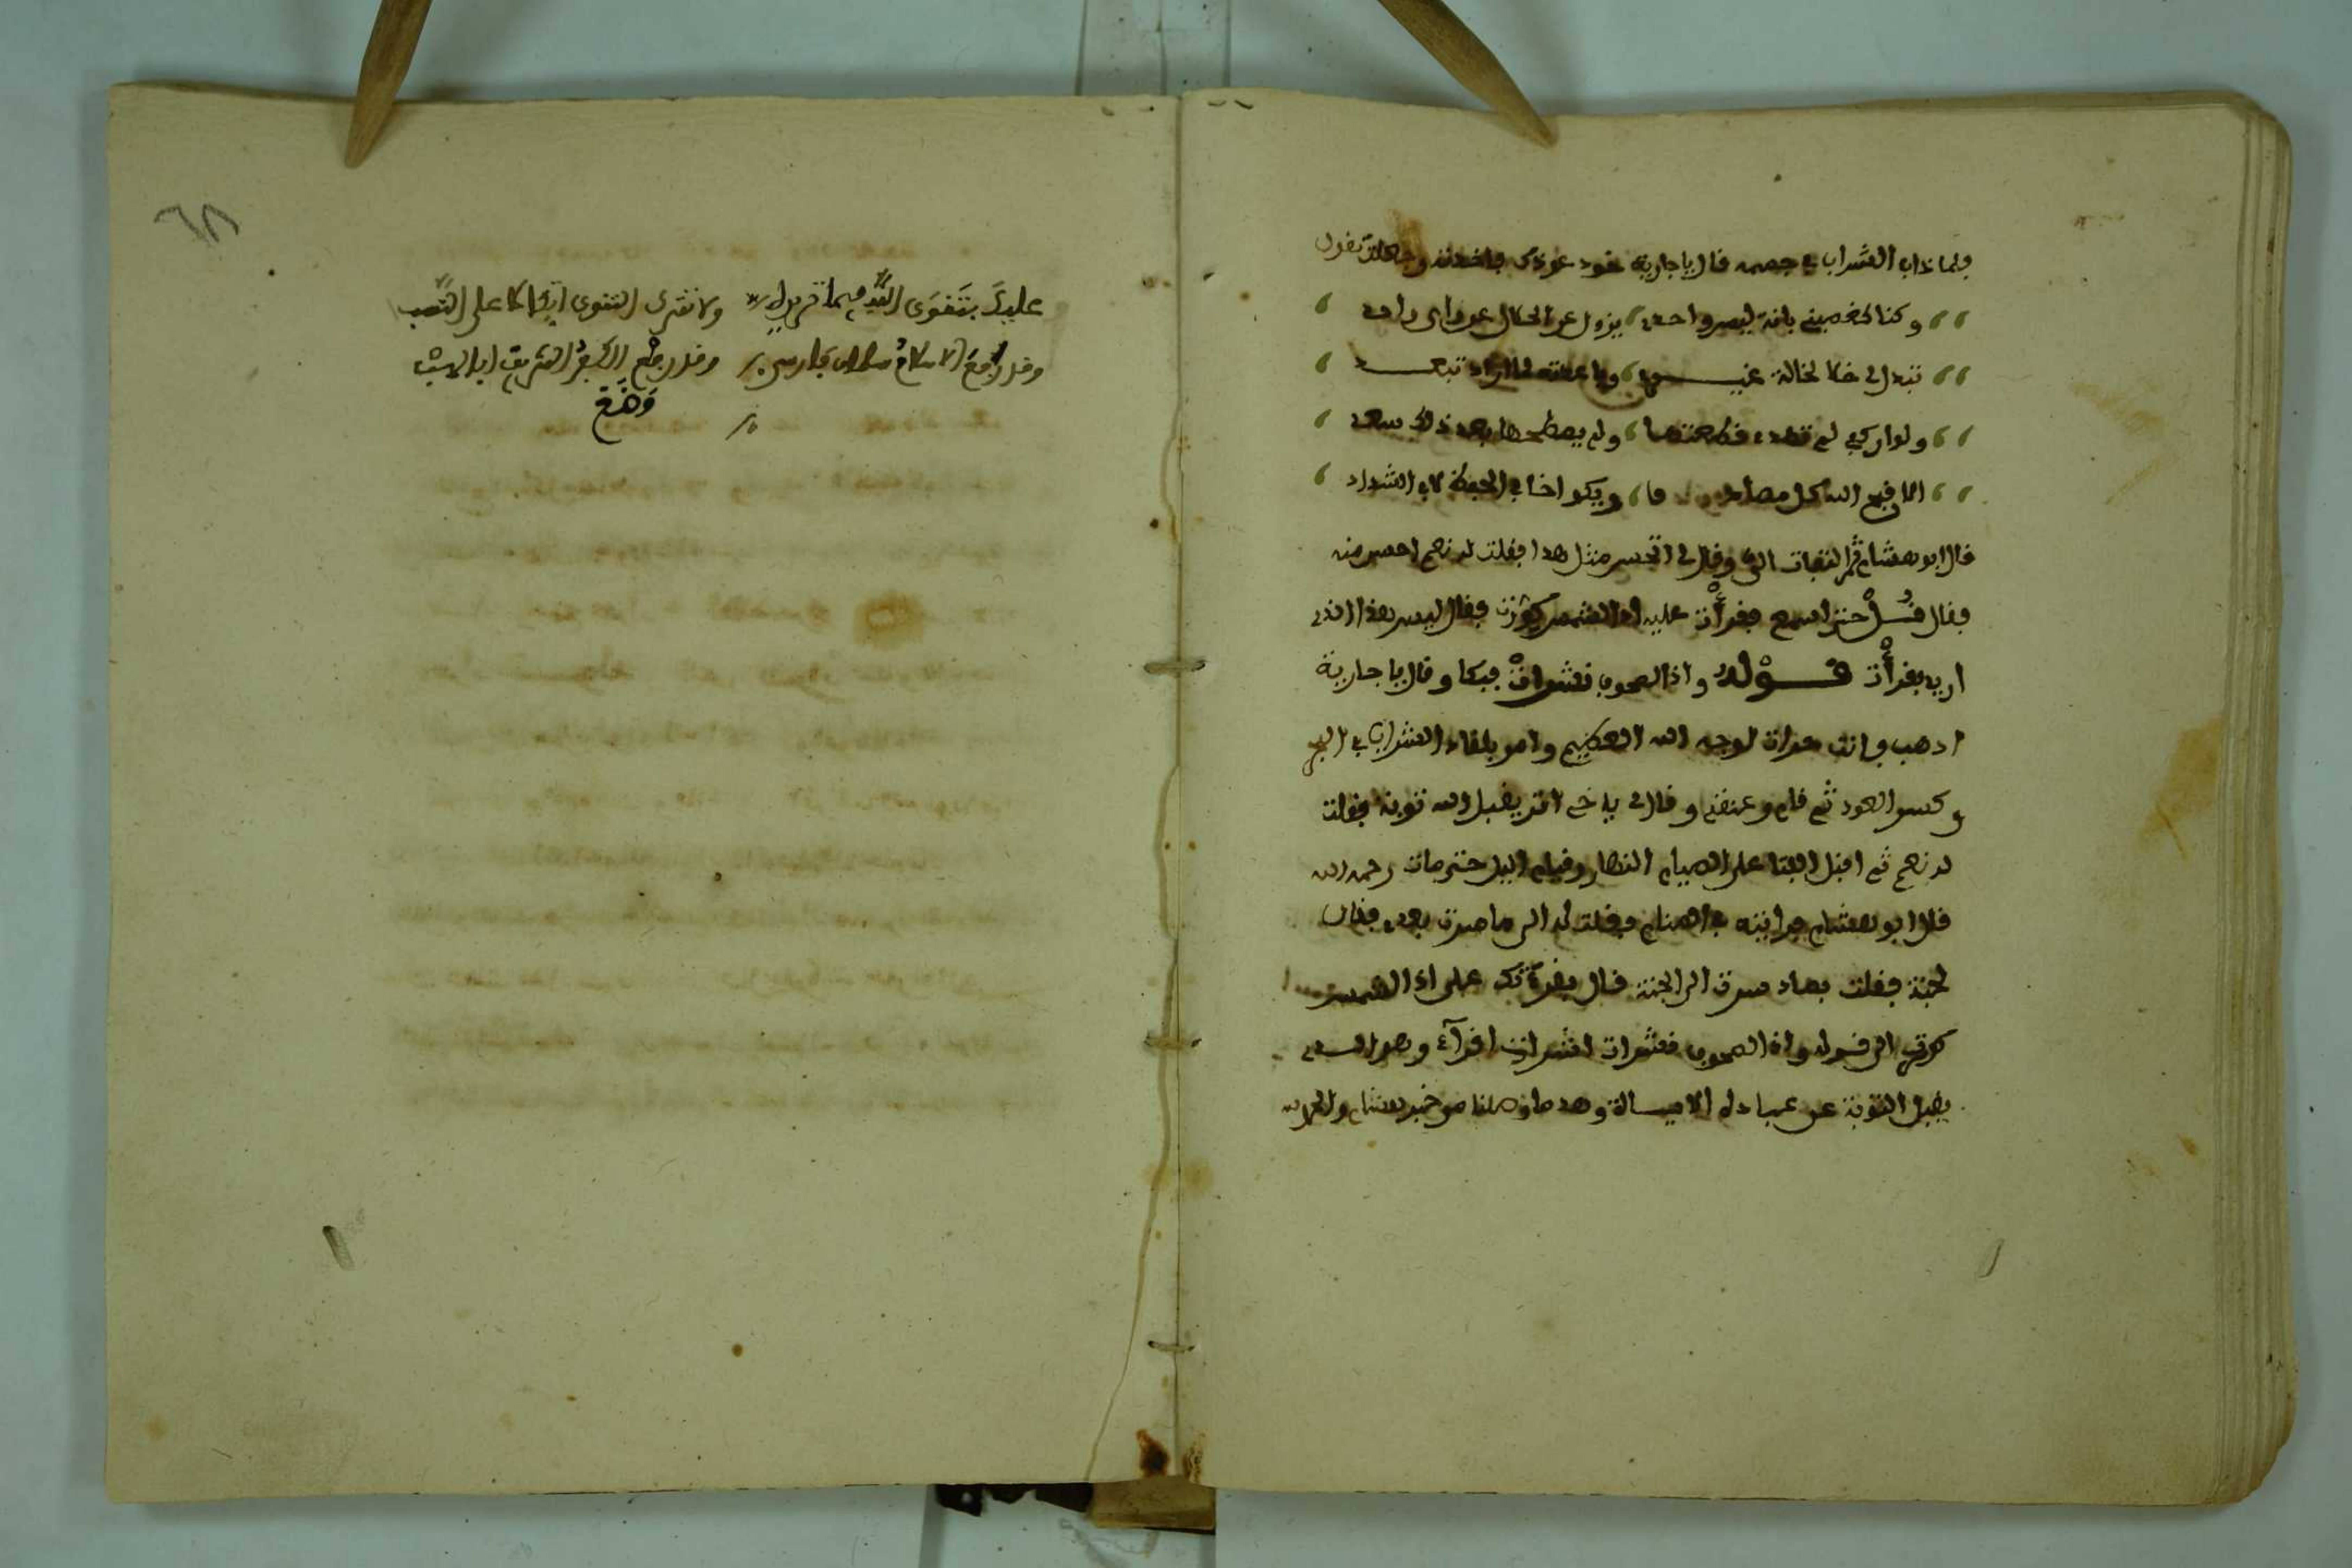 فلما ذاب الشراب في جسمه قال يا جارية خود عودك فاخذته وجعلت تقول
وكنا كغصيني بانة ليس واحد يزول عن الحال عن راي واحد
تبدل لي خلا لخاللة غيره
ولو ان كفي لم تطده قطعتها ولم يصطحبها بعد ذلك ساعد
الا قبح الله كل
قال ابو هشام ثم التفت الي وقال لي اتحسن مثل هذا فقلت له نعم احسن منه
فقال قل حتى اسمع فقرأت عليه اذا الشمس كورت فقال ليس هذا الذي
اريد فقرأت قوله واذا الصحوف نشرات فبكا وقال يا جارية
اذهب فانت حرات لوجه الله العظيم وامر بلقاء الشراب في البحر
وكسر العود ثم قام وعنقني وقال لي ياخي اتر يقبل الله توبة فقلت
له نعم ثم اقبل الفتا على الصيام النهار وقيام اليل حتى مات رحمه الله
قال ابو هشام فرايته في المنام فقلت له الى ما صرت بعدي فقال
لجنة فقلت بماد صرت الى الجنة قال بقرءتك على اذا الشمس
كورت الى قوله واذا الصحوف نشرات اقرأ وهو الذي
يقبل التوبة عن عباده الاية وهذ ما وصلنا من خبر هشام والحمد لله
٦٨
عليك بتقوى الله فيما تريد ولا تترك التقوى اتكالا على النسب
وقد رفع الاسلام سلمان فارس وقد وضع الكفر الشريف ابا لهب
وَضَعَ